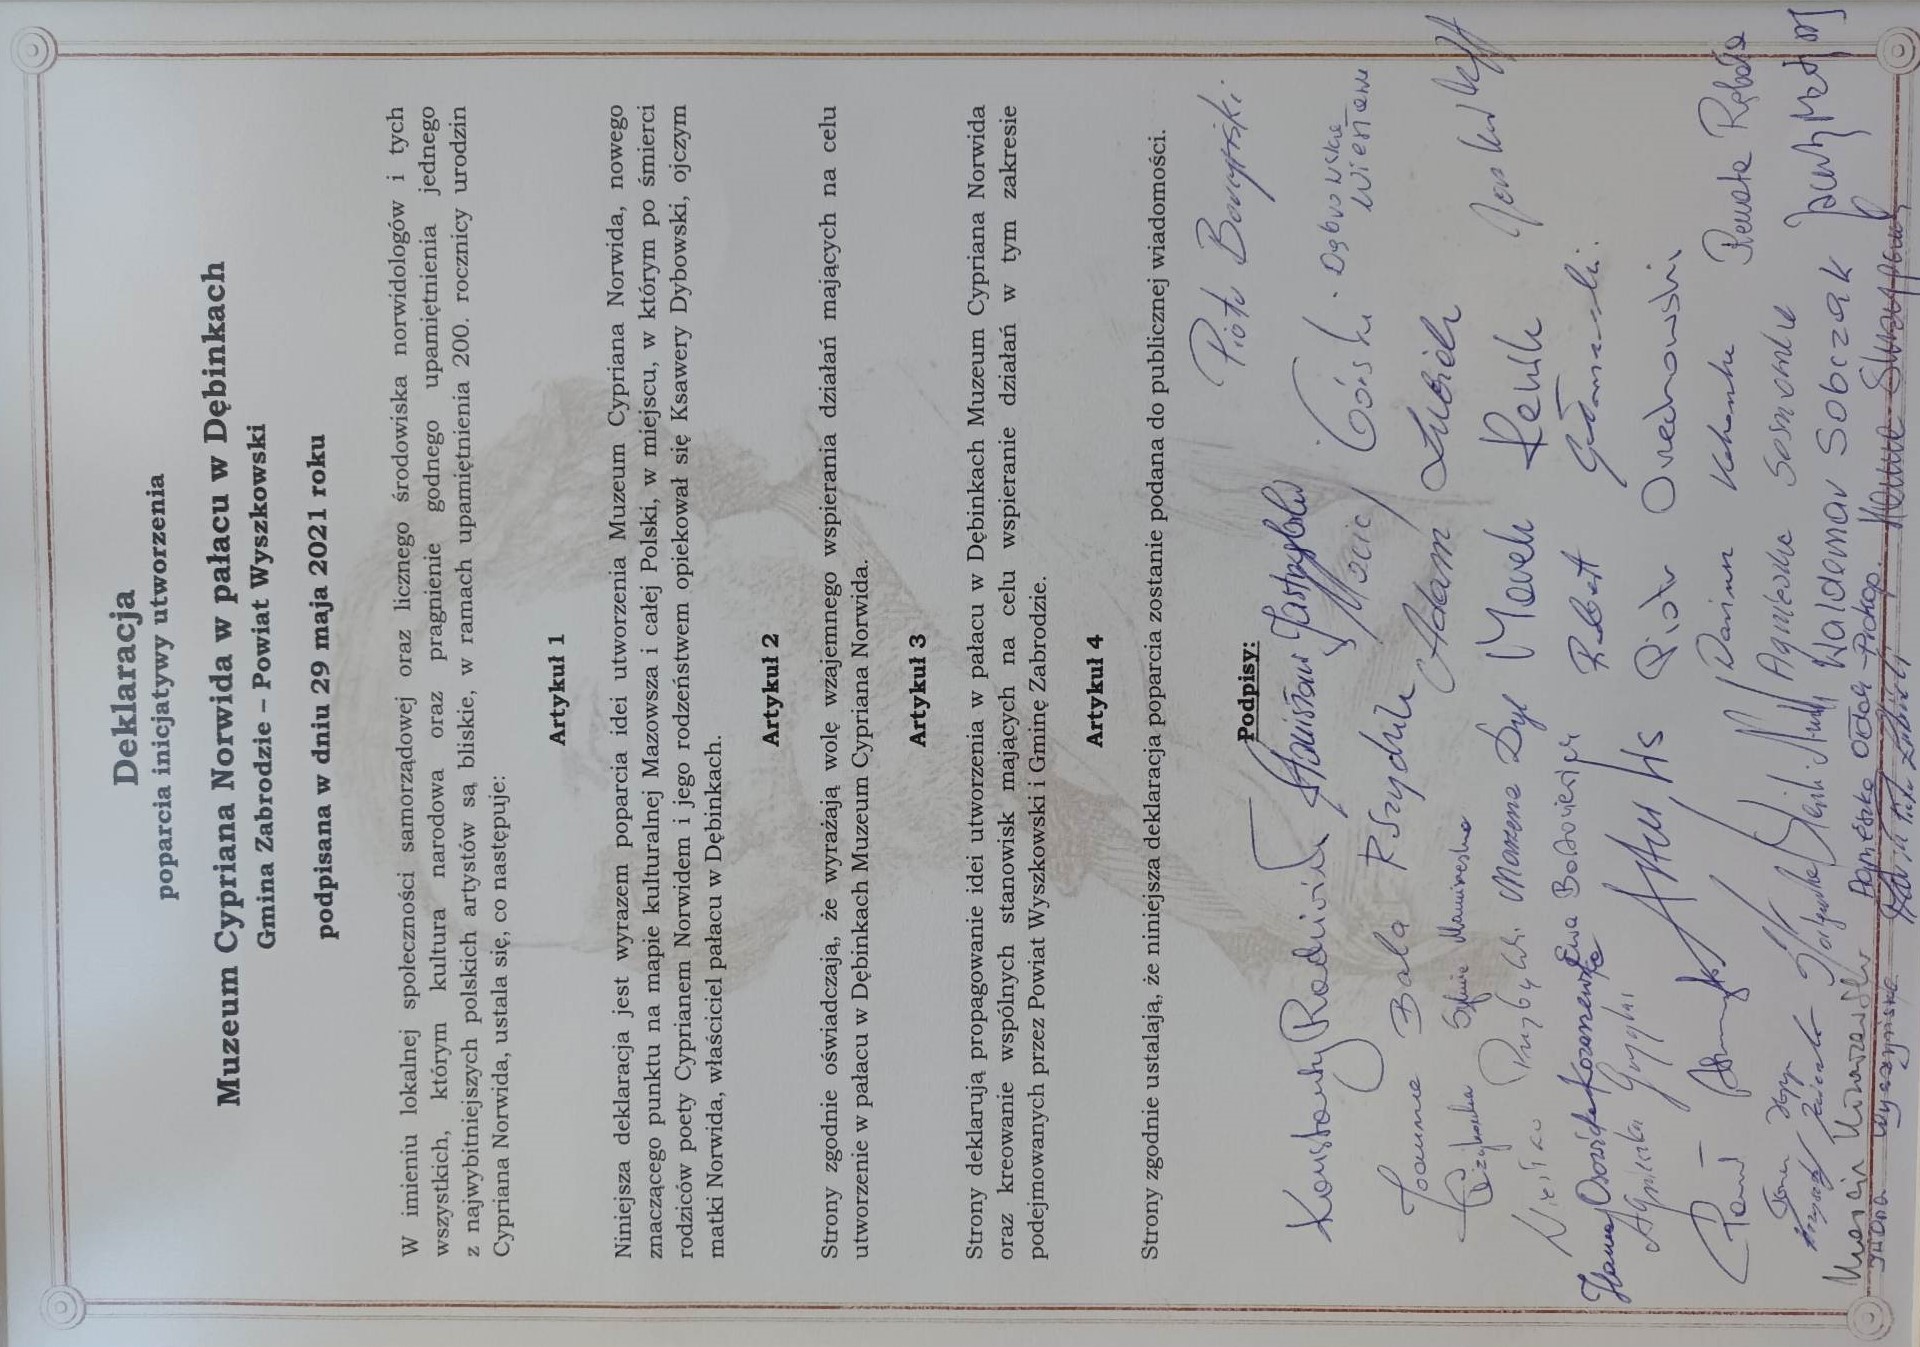 Deklaracja
poparcia inicjatywy utworzenia
Muzeum Cypriana Norwida w pałacu w Dębinkach
Gmina Zabrodzie – Powiat Wyszkowski
podpisana w dniu 29 maja 2021 roku
W imieniu lokalnej społeczności samorządowej oraz licznego środowiska norwidologów i tych
wszystkich, którym kultura narodowa oraz pragnienie godnego upamiętnienia jednego
z najwybitniejszych polskich artystów są bliskie, w ramach upamiętnienia 200. rocznicy urodzin
Cypriana Norwida, ustala się, co następuje:
Artykuł 1
Niniejsza deklaracja jest wyrazem poparcia idei utworzenia Muzeum Cypriana Norwida, nowego
znaczącego punktu na mapie kulturalnej Mazowsza i całej Polski, w miejscu, w którym po śmierci
rodziców poety Cyprianem Norwidem i jego rodzeństwem opiekował się Ksawery Dybowski, ojczym
matki Norwida, właściciel pałacu w Dębinkach.
Artykuł 2
Strony zgodnie oświadczają, że wyrażają wolę wzajemnego wspierania działań mających na celu
utworzenie w pałacu w Dębinkach Muzeum Cypriana Norwida.
Artykuł 3
Strony deklarują propagowanie idei utworzenia w pałacu w Dębinkach Muzeum Cypriana Norwida
oraz kreowanie wspólnych stanowisk mających na celu wspieranie działań w tym zakresie
podejmowanych przez Powiat Wyszkowski i Gminę Zabrodzie.
Artykuł 4
Strony zgodnie ustalają, że niniejsza deklaracja poparcia zostanie podana do publicznej wiadomości.
Podpisy:
Piotr
Konstanty Radziwiłł Stanisław Jastrzębski
Maciej Górski Dąbrowska Wiesława
Joanna Bala R. Szydlik Adam Lubiak
Sylwia
Marzena Dyl Marek
Ewa Robert
Hanna Osowicka Korzeniewska
Agnieszka Artur Piotr Orzechowski
Paweł Renata
Agnieszka Sosnowska
Waldemar Sobczak
Marcin Agnieszka Ołdak-Prokop
Iwona Wyszyńska